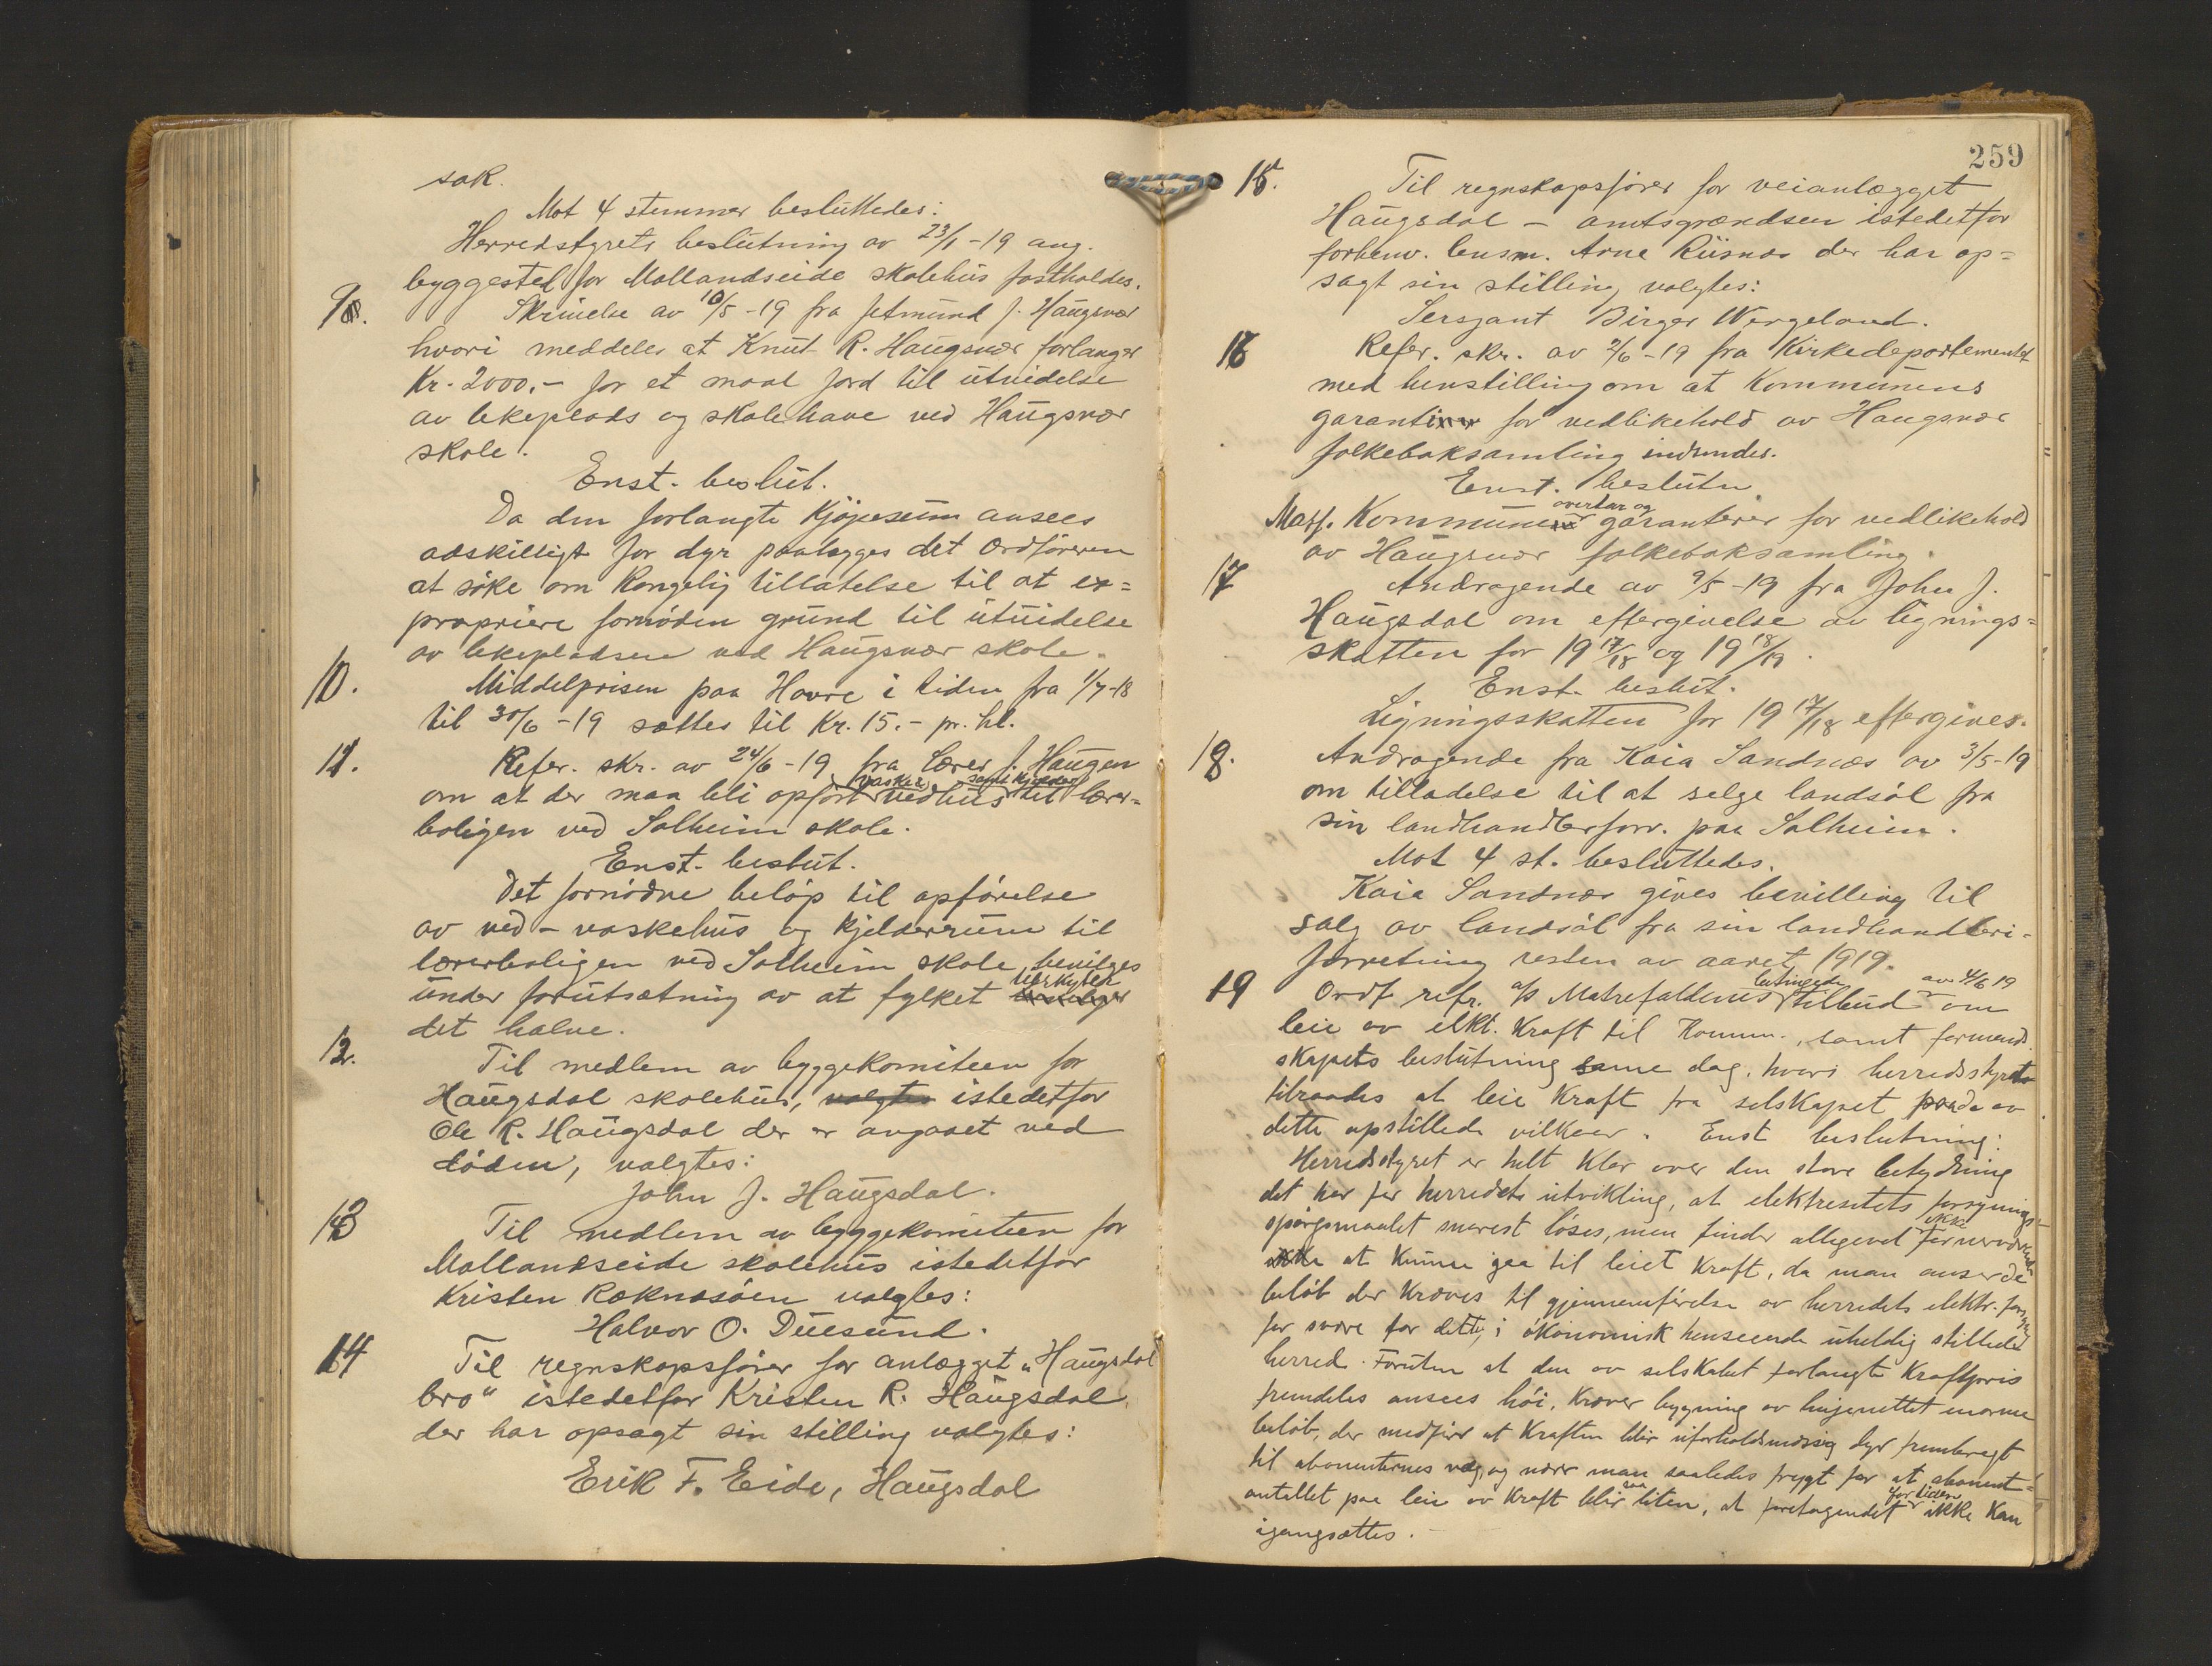 sak.
Mot 4 stemmer besluttedes:
Herredstyrets beslutning av 23/1-19 ang.
byggested for Mollandseide skolehus fastholdes.
9. Skrivelse av 10/5-19 fra Jetmund J. Haugsvær
hvori meddeles at Knut R. Haugsvær forlanger
Kr. 2000.- for et maal jord til utvidelse
av lekeplads og skolehave ved Haugsvær
skole.
Enst. beslut.
Da den forlangte kjøpesum ansees
adskilligt for dyr paalægges det Ordføreren
at søke om Kongelig tillatelse til at ex=
propriere fornøden grund til utvidelse
av lekepladsen ved Haugsvær skole.
10. Middelprisen paa Havre i tiden fra 1/7-18
til 30/6-19 sættes til Kr. 15.- pr. hl.
11. Refer. skr. av 24/6-19 fra Lærer J. Haugen
om at der maa bli opført vaske & vedhus samt kjelder til lærer=
boligen ved Solheim skole.
Enst. beslut.
Det fornødne beløp til opførelse
av ved- vaskehus og kjelderrum til
lærerboligen ved Solheim skole bevilges
under forutsætning av at fylket utskyter
det halve.
12. Til medlem av byggekomiteen for
Haugsdal skolehus, valgtes istedetfor
Ole R. Haugsdal der er avgaaet ved
døden, valgtes:
John J. Haugsdal.
13 Til medlem av byggekomiteen for
Mollandseide skolehus istedetfor
Kristen Roknasøen valgtes:
Halvor O. Duesund.
14 Til regnskapsfører for anlægget "Haugsdal
bro" istedetfor Kristen R. Haugsdal
der har opsagt sin stilling valgtes:
Erik F. Eide, Haugsdal
259
15. Til regnskapsfører for veianlægget
Haugsdal - amtsgrændsen istedetfor
forhenv. lensm. Arne Riisnæs der har op=
sagt sin stilling valgtes:
Sersjant Birger Wergeland.
16 Refer. skr. av 2/6-19 fra Kirkedepartementet
med henstilling om at Kommunens
garanti for vedlikehold av Haugsvær
folkeboksamling indsendes.
Enst. beslutn
Masf. Kommune overtar og garanterer for vedlikehold
av Haugsvær folkeboksamling.
17 Andragende av 9/5-19 fra John J.
Haugsdal om eftergivelse av lignings=
skatten for 1917/18 og 1918/19.
Enst. beslut.
Ligningsskatten for 1917/18 eftergives.
18. Andragende fra Kaia Sandnæs av 3/5-19
om tilladelse til at selge landsøl fra
sin landhandlerforr. paa Solheim.
Mot 4 st. besluttedes.
Kaia Sandnæs gives bevilling til
salg av landsøl fra sin landhandleri-
forretning resten av aaret 1919.
19 Ordf refr. a/s Matrefaldenes betingede tilbud av 4/6 19 om
leie av elkt. Kraft til Komm., samt formend
skapets beslutning same dag, hvori herredsstyret
tilraades at leie Kraft fra selskapet paa de av
dette opstillede vilkaar. Enst beslutning:
Herredsstyret er helt klar over den store betydning
det har for herredets utvikling, at elektresitets forsynings-
spørgsmaalet snarest løses, men finder allikevel ikke for nærværende
at kunne gaa til leiet Kraft, da man anser de
beløb der kræves til gjennemførelse av herredets elektr.
for svære for dette, i økonomisk henseende uheldig stillede
herred. Foruten at den av selskabet forlangte Kraftpris
fremdeles ansees høi, kræver bygning av linjenettet enorme
beløb, der medfører at Kraften blir uforholdsmæssig dyr fremlagt
til abonenternes væg, og nærer man saaledes frygt for at abonent=
antallet paa leie av Kraft blir saa liten, at foretagendet for tiden ikke kan
igangsættes.-